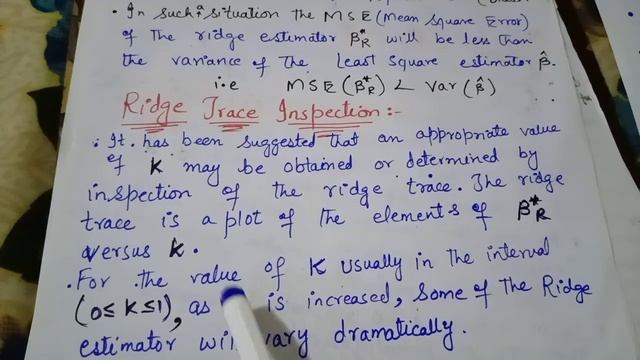 • In such a situation the MSE (Mean Square Error)
of The ridge estimator β*R will be less than
the variance of the Least Square estimator β̂.
i.e MSE (β*R) < Var (β̂)
Ridge Trace Inspection:-
• It has been suggested that an appropriate value
of K may be obtained or determined by
inspection of the ridge trace. The ridge
trace is a plot of the elements of β*R
versus K.
• For the value of K usually in the interval
(0≤ K ≤1), as is increased, Some of The Ridge
estimator will vary dramatically.